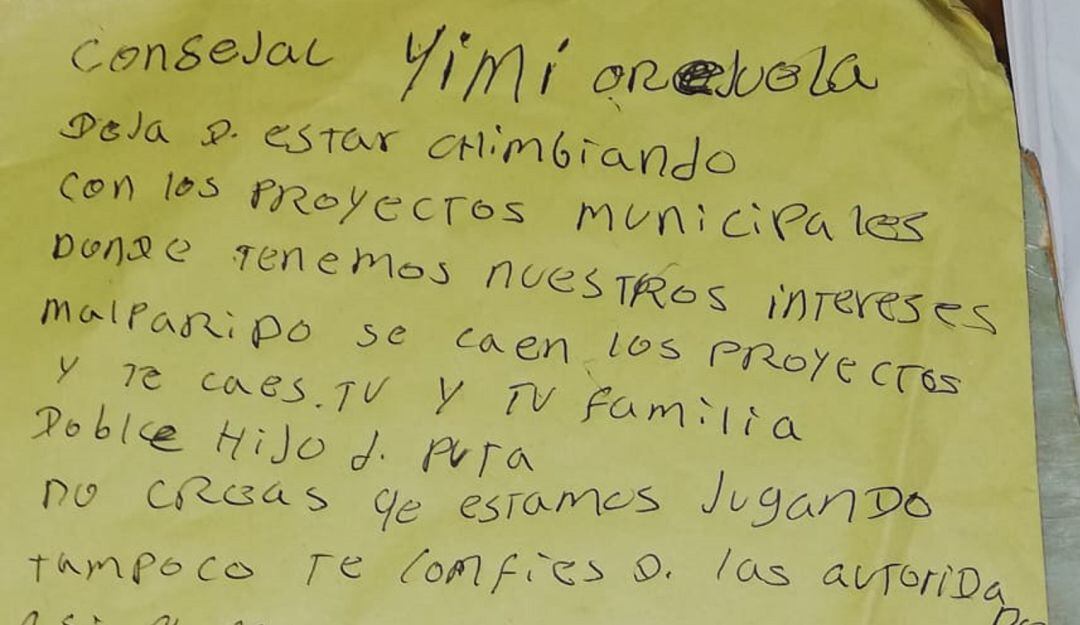 conseJal Yimi orejuela
DeJa D. estar chimbiando
con los proyectos municipales
Donde tenemos nuestros intereses
malpariDo se caen los proyectos
y te caes. tu y tu familia
Doblee HiJo d. puta
no creas qe estamos JuganDo
tampoco te comfies D. las autoriDa